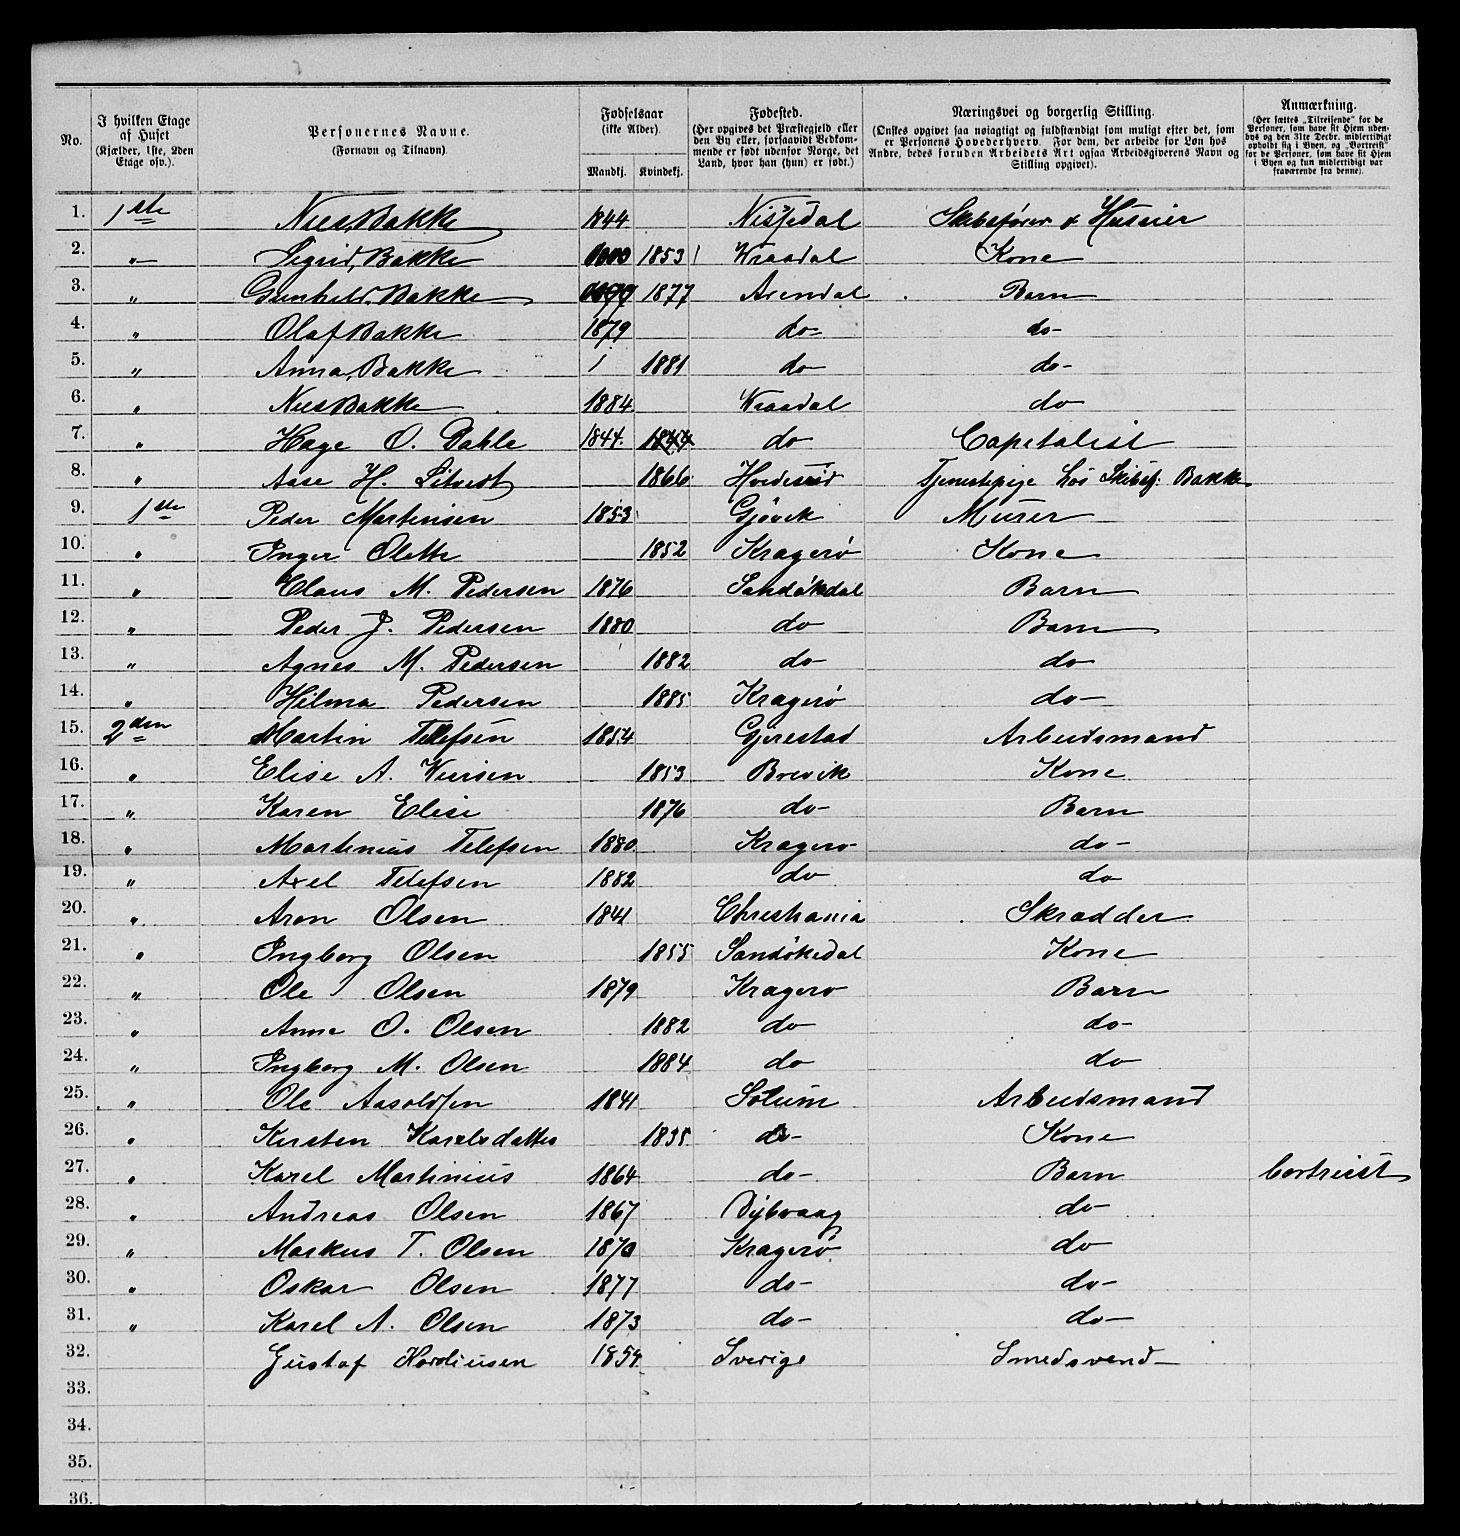 No. | I hvilken Etage af Huset (Kjælder, 1ste, 2den Etage osv.). | Personernes Navne. (Fornavn og Tilnavn). | Fødselsaar (ikke Alder). Mandkj. | Kvindekj. | Fødested. (Her opgives det Præstegjeld eller den By eller, forsaavidt Vedkommende er født udenfor Norge, det Land, hvor han (hun) er født.) | Næringsvei og borgerlig Stilling. (Ønskes opgivet saa nøiagtigt og fuldstændigt som muligt efter det, som er Personens Hovederhverv. For dem, der arbeide for Løn hos Andre, bedes foruden Arbeidets Art ogsaa Arbeidsgiverens Navn og Stilling opgivet). | Anmærkning. (Her sættes „Tilreisende“ for de Personer, som have sit Hjem udenbys og den 31te Decbr. midlertidigt opholdt sig i Byen, og „Bortreist“ for de Personer, som have sit Hjem i Byen og kun midlertidigt var fraværende fra denne).
1. 1ste Niels Bakke 1844 Nissedal Skibsfører & Huseier
2. " Sigrid Bakke 1853 Kraadal Kone
3. " Gunhild Bakke 1877 Arendal Barn
4. " Olaf Bakke 1879 do do
5. " Anna Bakke 1881 do do
6. " Niels Bakke 1884 Kraadal do
7. " Hage O. Dahle 1844. 1844 do Capitalist
8. " Aase H. 1866 Hvideseid Tjenestepige hos Skibsf. Bakke
9. 1ste Peder Martinsen 1853 Gjøvik Murer
10. " Inger Olette 1852 Kragerø Kone
11. " Claus M. Pedersen 1876 Sandøkedal Barn
12. " Peder J. Pedersen 1880 do Barn
13. " Agnes M. Pedersen 1882 do do
14. " Hilma Pedersen 1885 Kragerö do
15. 2den Martin Tellefsen 1854 Gjerestad Arbeidsmand
16. " Elise A. 1853 Brevik Kone
17. " Karen Elise 1876 do Barn
18. " Martinius Telefsen 1880 Kragerø do
19. " Axel Telefsen 1882 do do
20. " Aron Olsen 1841 Christiania Skrædder
21. " Ingborg Olsen 1855 Sandökedal Kone
22. " Ole Olsen 1879 Kragero Barn
23. " Anne O. Olsen 1882 do do
24. " Ingborg M. Olsen 1884 do do
25. " Ole Aasoldsen 1841 Solum Arbeidsmand
26. " Kirsten Karelsdatter 1835 do Kone
27. " Karel Martinius 1864 do Barn bortreist
28. " Andreas Olsen 1867 Dybvaag do
29. " Markus T. Olsen 1870 Kragerö do
30. " Oskar Olsen 1877 do do
31. " Karel A. Olsen 1873 do do
32. Gustaf 1854 Sverige Smedsvend
33.
34.
35.
36.